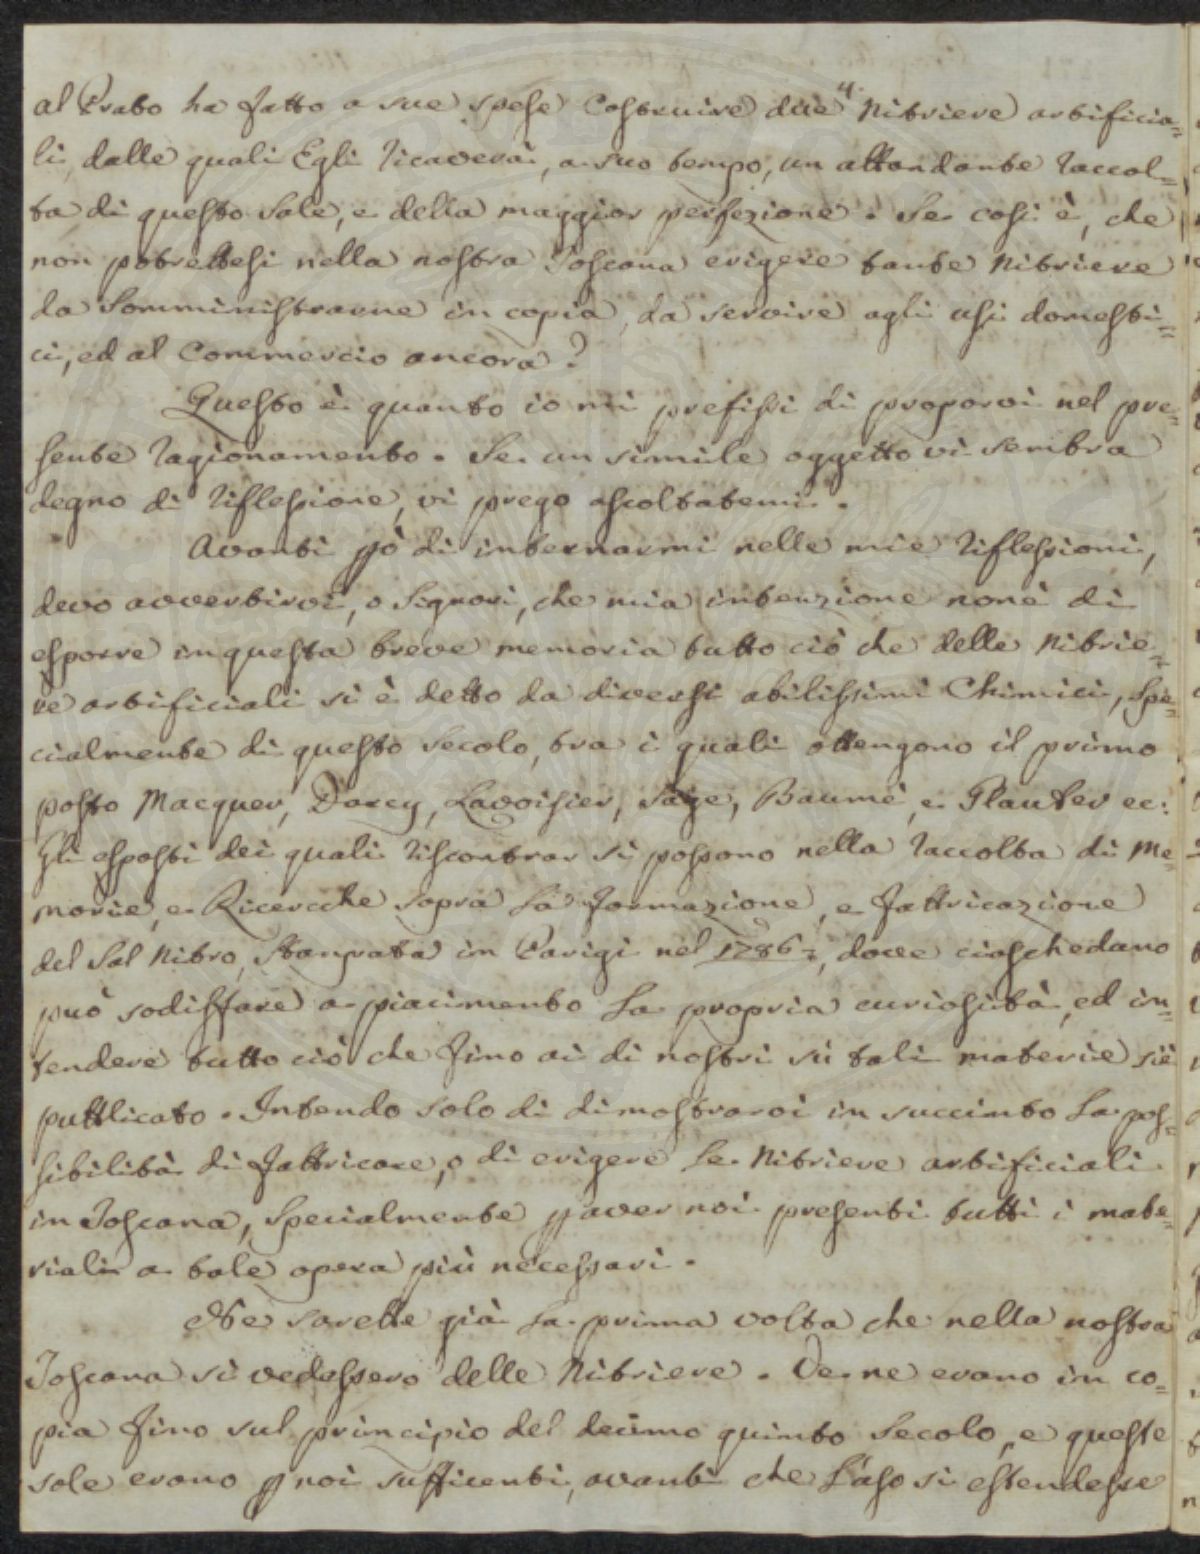 al Prato ha fatto a sue spese Costruire due Nitriere artificia=
li, dalle quali Egli ricaverà, a suo tempo, un abbondante raccol=
ta di questo Sale, e della maggior perfezione. Se così è, che
non potrebbesi nella nostra Toscana erigere tante Nitriere
da Somministrarne in copia, da servire agli usi domesti=
ci, ed al Commercio ancora?
Questo è quanto io mi prefissi di proporvi nel pre=
sente ragionamento. Se un simile oggetto vi sembra
degno di riflessione, vi prego ascoltatemi.
Avanti pò di internarmi nelle mie riflessioni,
devo avvertirvi, o Signori, che mia intenzione non è di
esporre in questa breve memoria tutto ciò che delle Nitrie=
re artificiali si è detto da diversi abilissimi Chimici, Spe=
cialmente di questo secolo, tra i quali ottengono il primo
posto Macquer, Darcy, Lavoisier, Sage, Baumé, e Glauber ec:
Gli esposti dei quali riscontrar si possono nella raccolta di Me=
morie, e Ricerche sopra la formazione, e fabbricazione
del Sal Nitro, Stampata in Parigi nel 1786, dove ciaschedano
può sodisfare a piacimento la propria curiosità, ed in=
tendere tutto ciò che fino ai dì nostri sù tali materie siè
pubblicato. Intendo solo di dimostrarvi in succinto la pos=
sibilità di fabbricare, o di erigere le Nitriere artificiali
in Toscana, Specialmente p aver noi presenti tutti i mate=
riali a tale opera più necessari.
Ne sarebbe già la prima volta che nella nostra
Toscana si vedessero delle Nitriere. Ve ne erano in co=
pia fino sul principio del decimo quinto Secolo, e queste
sole erano p noi sufficenti, avanti che l'uso si estendesse